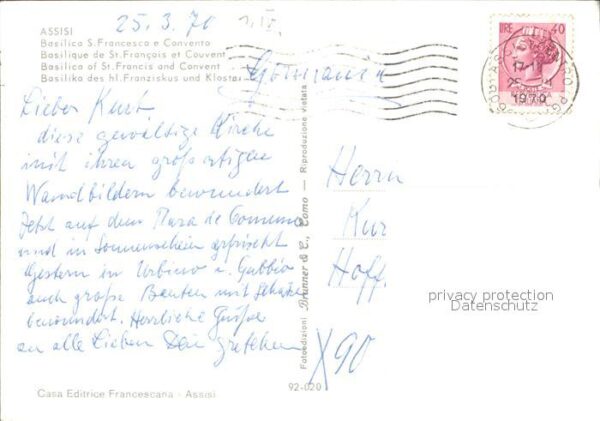 25.3.70
ASSISI
Basilica S. Francesco e Convento
Basilique de St. François et Couvent
Basilica of St. Francis and Convent
Basilika des Hl. Franziskus und Kloster
Lieber Kurt,
diese gewaltige Kirche
mit ihren großartigen
Wandbildern bewundert
Jetzt auf dem Piazza de Comune
und in Sonnenschein erfrischt
Gestern in Urbino u. Gubbio
auch große Bauten mit
bewundert. Herrliche Grüße
an alle Lieben Dein Gretchen
Casa Editrice Francescana - Assisi
92-020
Fotoedizioni Brunner & C., Como — Riproduzione vietata
LIRE 40
17-
1970
Germania
Herrn
Kur
Hoff.
privacy protection
Datenschutz
X90